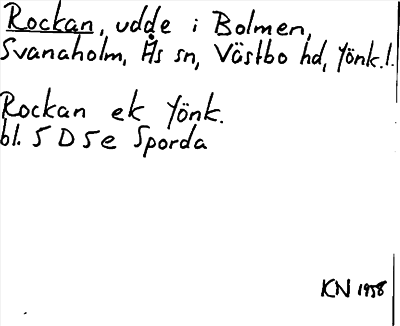 Rockan, udde i Bolmen,
Svanaholm, Ås sn, Västbo hd, Jönk.l.
Rockan ek Jönk.
bl. 5 D 5 e Sporda
KN 1958